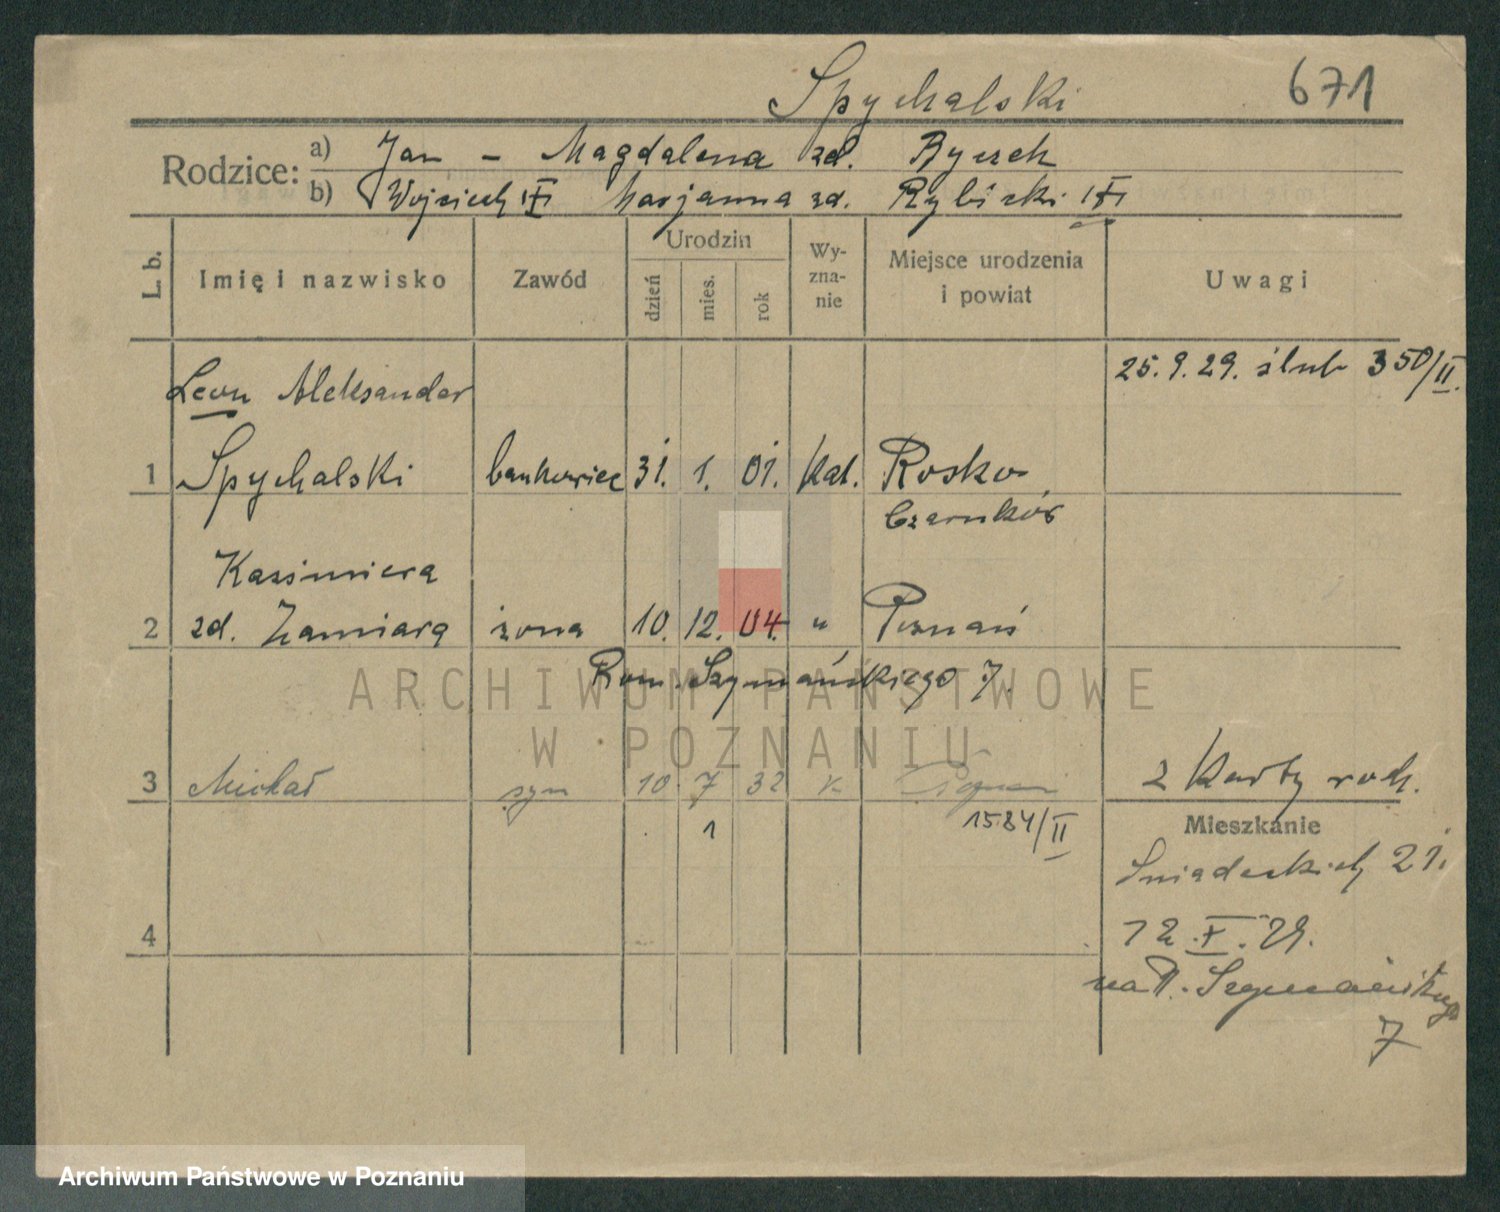 Spychalski 671
Rodzice: a) Jan - Magdalena zd. Ryczek
b) Wojciech Marjanna zd. Rybicki
L. b. Imię i nazwisko Zawód Urodzin dzień mies. rok Wy-zna-nie Miejsce urodzenia i powiat Uwagi
25.9.29. ślub 350/II.
Leon Aleksander
1 Spychalski bankowiec 31. 1. 01. kat. Rosko
Czarnków
Kazimiera
2 zd. Zamiara żona 10. 12. 04. " Poznań
Rom. Szymańskiego 7.
3 Michał syn 10 7 32 k Poznań 2 karty rodz.
1 1584/II
Mieszkanie
Śniadeckich 21.
4
12.X.29.
na R. Szymańskiego
7
ARCHIWUM PAŃSTWOWE
W POZNANIU
Archiwum Państwowe w Poznaniu